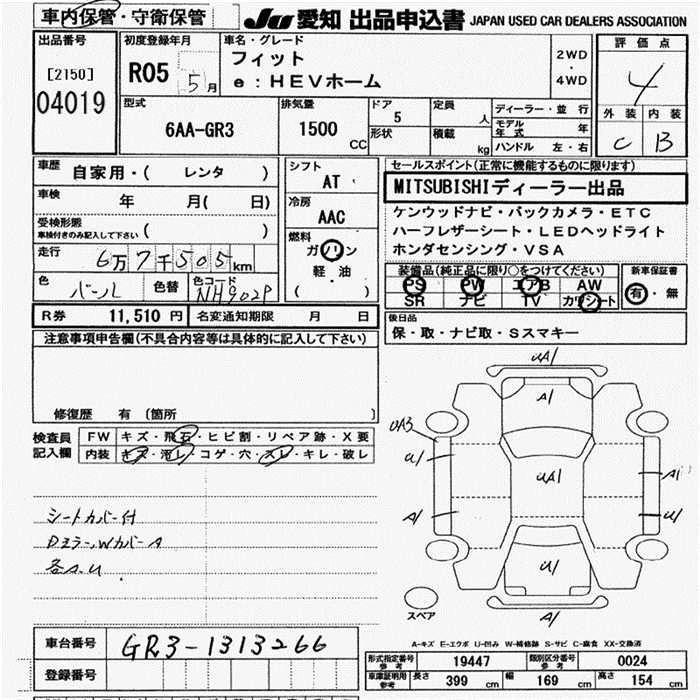 車内保管・守衛保管
JU 愛知 出品申込書 JAPAN USED CAR DEALERS ASSOCIATION
出品番号
[2150]
04019
初度登録年月
R05 5月
車名・グレード
フィット
e:HEVホーム
2WD
・
4WD
評価点
4
外装 内装
C B
型式
6AA-GR3
排気量
1500 CC
ドア
5
形状
定員 人
積載 kg
ディーラー・並行
モデル年式 年
ハンドル 左・右
車歴
自家用・( レンタ )
車検
年 月( 日)
受検形態
車検付きのみ記入して下さい ( )
走行
6万7千505km
色
パール
色替
色コード
NH902P
シフト
AT
冷房
AAC
燃料
ガソリン
軽・油
( )
セールスポイント(正常に機能するものに限ります)
MITSUBISHIディーラー出品
ケンウッドナビ・バックカメラ・ETC
ハーフレザーシート・LEDヘッドライト
ホンダセンシング・VSA
装備品(純正品に限り○をつけてください)
PS PW エアB AW
SR ナビ TV カワシート
新車保証書
有・無
R券 11,510 円
名変通知期限 月 日
後日品
保・取・ナビ取・Sスマキー
注意事項申告欄(不具合内容等は具体的に記入して下さい)
修復歴 有 〔箇所 〕
検査員
記入欄
FW キズ・飛石・ヒビ割・リペア跡・X要
内装 キズ・汚レ・コゲ・穴・スレ・キレ・破レ
シートカバー付
DミラーWカバーA
各A.U
UA1
A1
UA3
U1
UA1
A1
A1
U1
U1
A1
スペア
A-キズ E-エクボ U-凹み W-補修跡 S-サビ C-腐食 XX-交換済
車台番号
GR3-1313266
登録番号
形式指定番号 参考
19447
類別区分番号 参考
0024
車庫証明用 参考
長さ 399 cm
幅 169 cm
高さ 154 cm